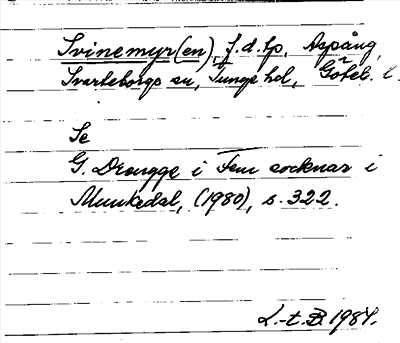 Svinemyr(en), f.d. lp, Aspång,
Svarteborgs sn, Tunge hd, Göteb. l.
Se
G. Drougge i Fem socknar i
Munkedal, (1980), s. 322.
L.-t. B. 1984.